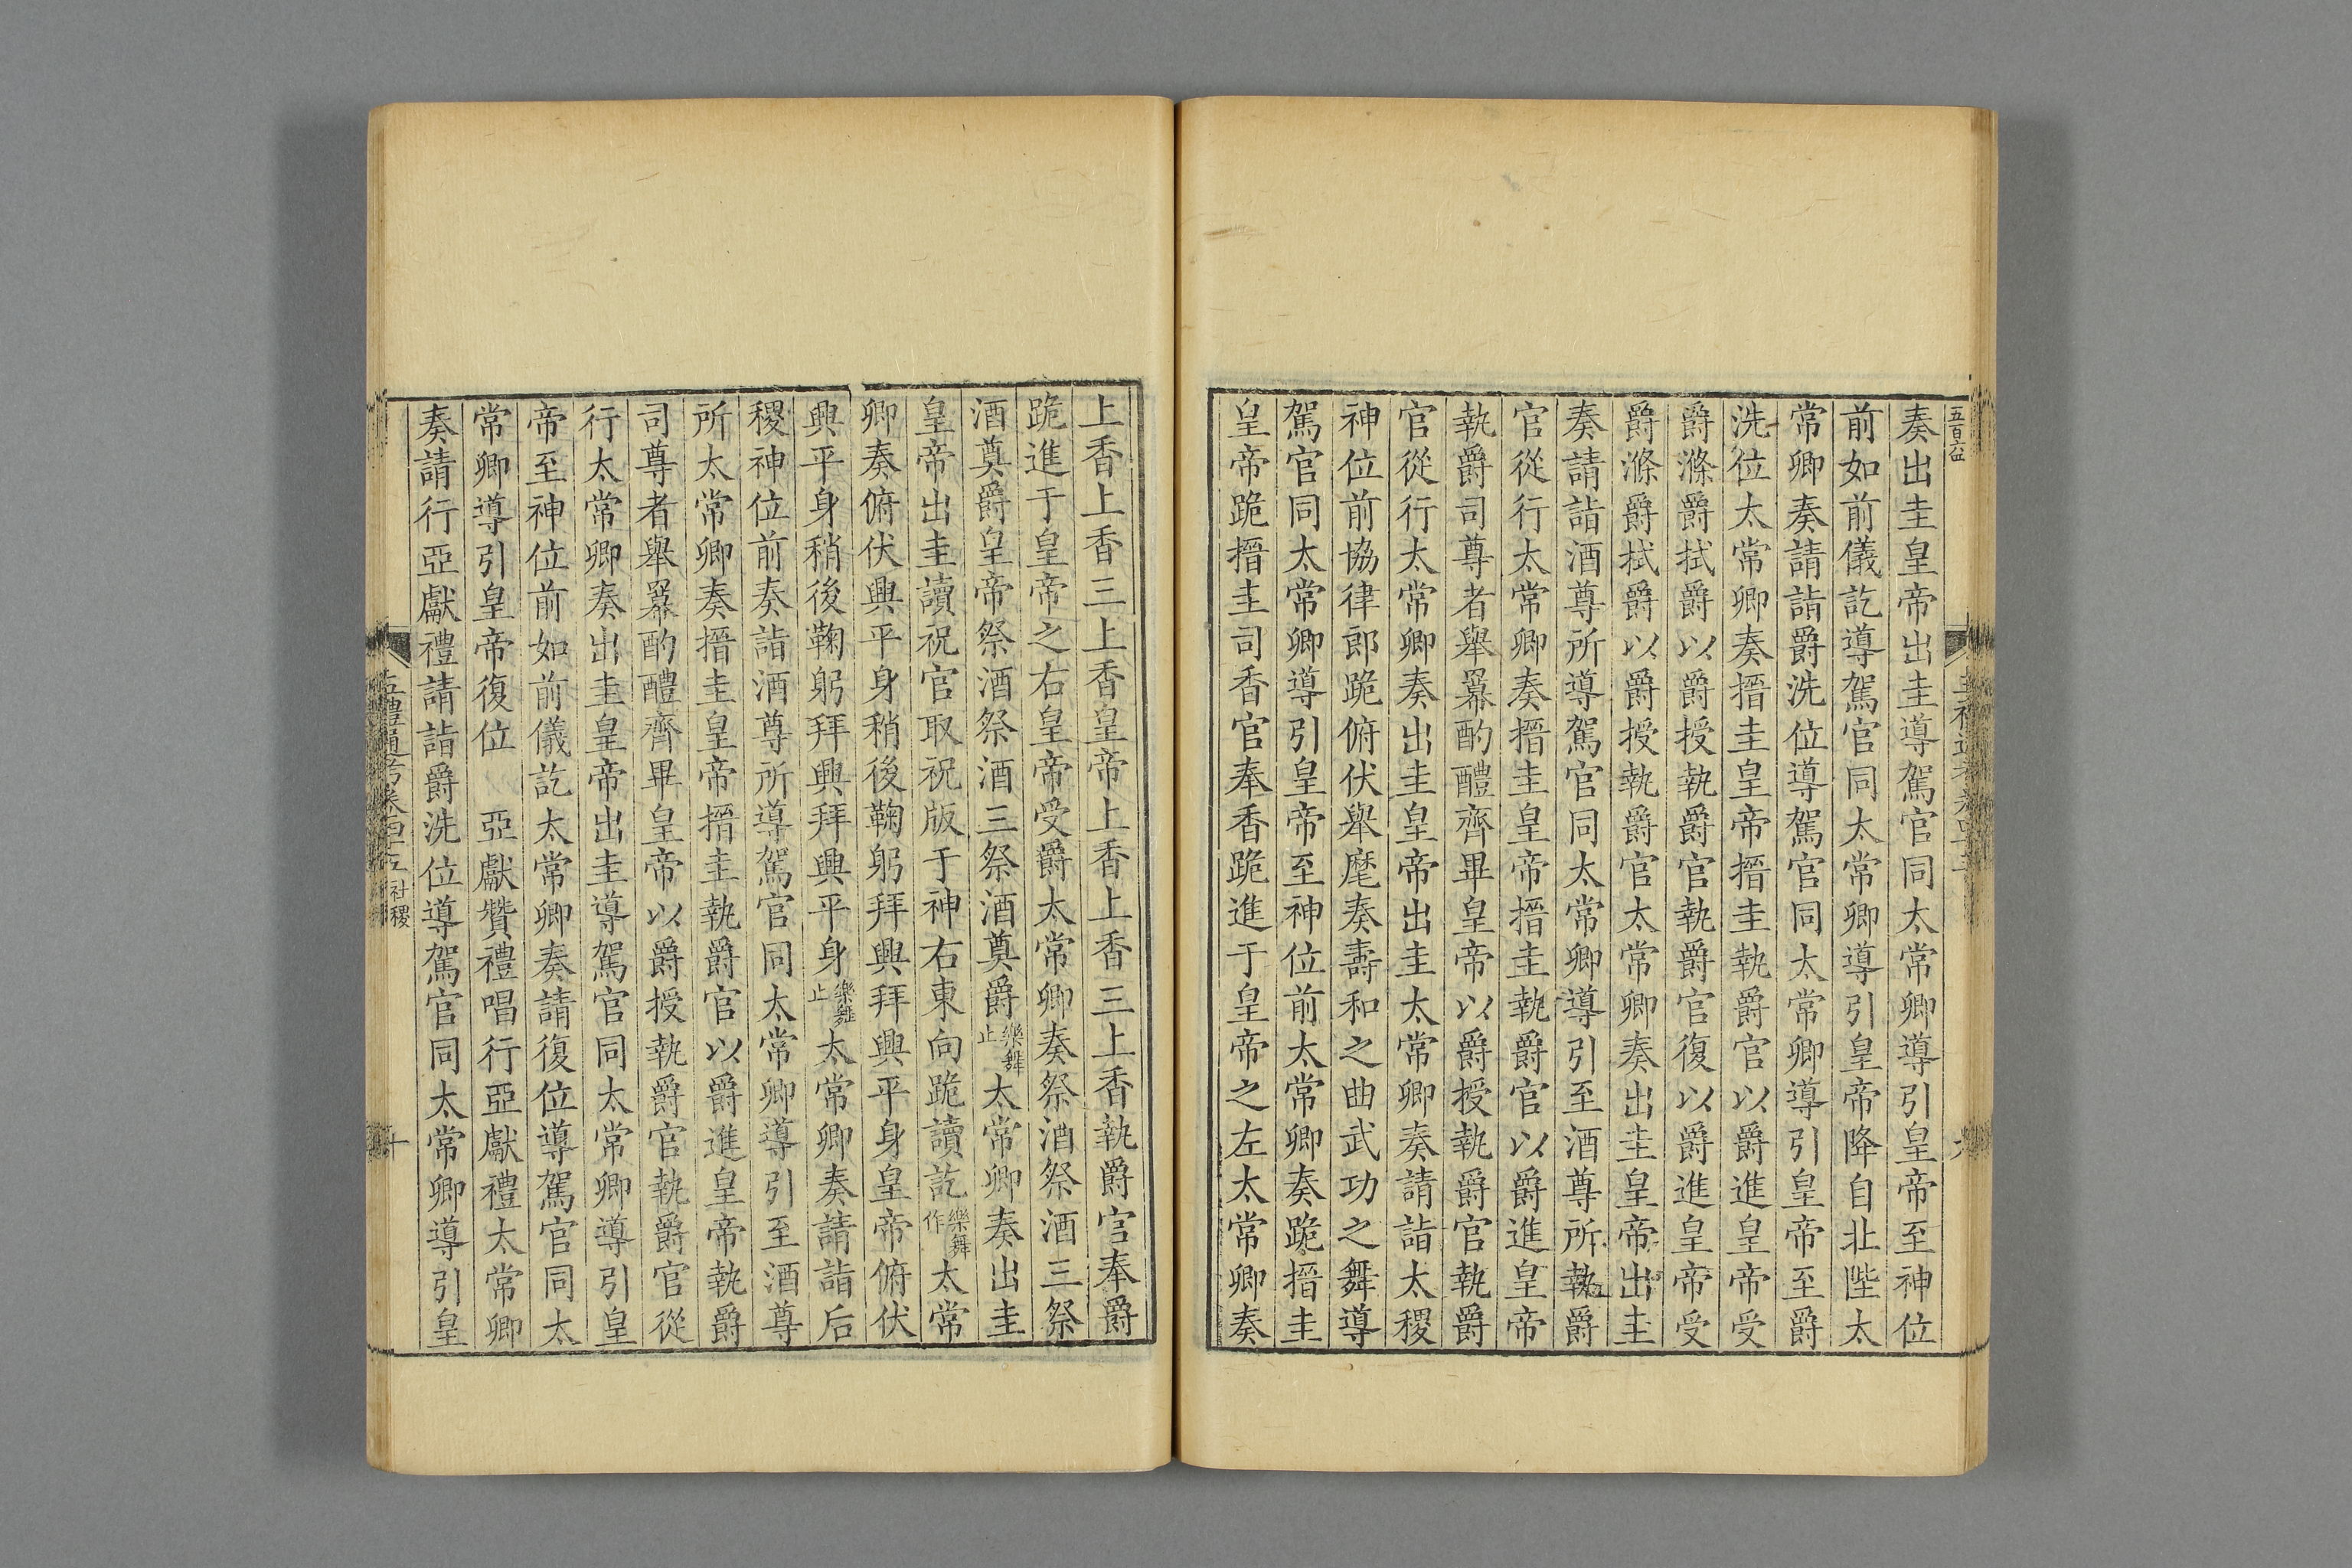 奏出圭皇帝出圭導駕官同太常卿導引皇帝至神位
前如前儀訖導駕官同太常卿導引皇帝降自北陛太
常卿奏請詣爵洗位導駕官同太常卿導引皇帝至爵
洗位太常卿奏搢圭皇帝搢圭執爵官以爵進皇帝受
爵滌爵拭爵以爵授執爵官執爵官復以爵進皇帝受
爵滌爵拭爵以爵授執爵官太常卿奏出圭皇帝出圭
奏請詣酒尊所導駕官同太常卿導引至酒尊所執爵
官從行太常卿奏搢圭皇帝搢圭執爵官以爵進皇帝
執爵司尊者舉羃酌醴齊畢皇帝以爵授執爵官執爵
官從行太常卿奏出圭皇帝出圭太常卿奏請詣太稷
神位前協律郎跪俯伏舉麾奏壽和之曲武功之舞導
駕官同太常卿導引皇帝至神位前太常卿奏跪搢圭
皇帝跪搢圭司香官奉香跪進于皇帝之左太常卿奏
上香上香三上香皇帝上香上香三上香執爵官奉爵
跪進于皇帝之右皇帝受爵太常卿奏祭酒祭酒三祭
酒奠爵皇帝祭酒祭酒三祭酒奠爵樂舞止太常卿奏出圭
皇帝出圭讀祝官取祝版于神右東向跪讀訖樂舞作太常
卿奏俯伏興平身稍後鞠躬拜興拜興平身皇帝俯伏
興平身稍後鞠躬拜興拜興平身樂舞止太常卿奏請詣后
稷神位前奏詣酒尊所導駕官同太常卿導引至酒尊
所太常卿奏搢圭皇帝搢圭執爵官以爵進皇帝執爵
司尊者舉羃酌醴齊畢皇帝以爵授執爵官執爵官從
行太常卿奏出圭皇帝出圭導駕官同太常卿導引皇
帝至神位前如前儀訖太常卿奏請復位導駕官同太
常卿導引皇帝復位　亞獻贊禮唱行亞獻禮太常卿
奏請行亞獻禮請詣爵洗位導駕官同太常卿導引皇
五禮通考卷四十五 社稷
十